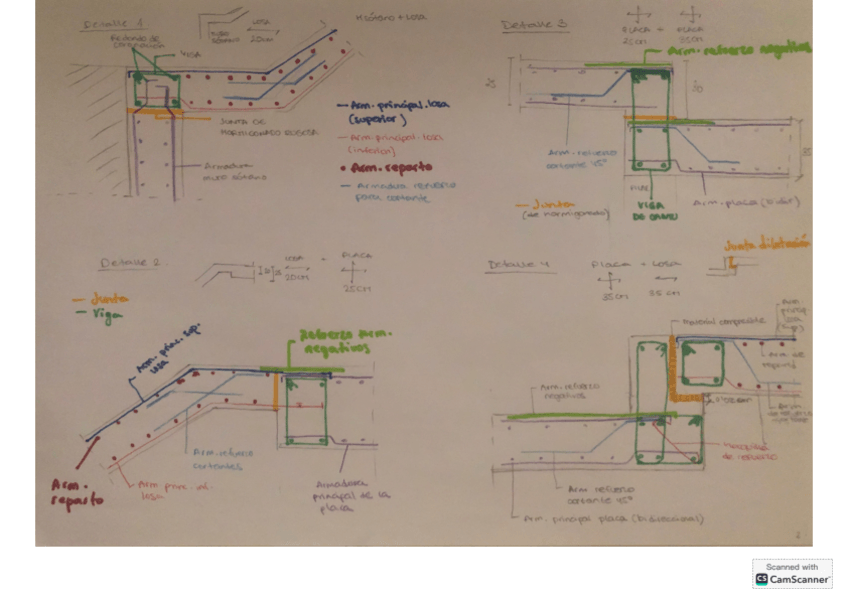 Detalle 1
LOSA
20cm
M.sótano + Losa
Redondo de
coronación
VIGA
JUNTA DE
HORMIGONADO RUGOSA
Armadura
muro sótano
— Arm. principal losa
(superior)
— Arm. principal losa
(inferior)
• Arm. reparto
— Armadura refuerzo
para cortante
Detalle 3
PLACA + PLACA
25cm 35cm
Arm. refuerzo negativos
Arm. refuerzo
cortante 45°
— Junta
(de hormigonado)
VIGA
DE CANTO
Arm. placa (bidir)
Detalle 2
LOSA + PLACA
20cm
25cm
— Junta
— Viga
Arm. princ. sup.
losa
Refuerzo Arm.
negativos
Arm. refuerzo
cortantes
Arm.
reparto
Arm princ. inf.
losa
Armadura
principal de la
placa
Detalle 4
PLACA + LOSA
35cm 35cm
Junta dilatación
material compresible
Arm. refuerzo
negativos
Arm. de
reparto
Arm.
de refuerzo
de refuerzo
Arm refuerzo
cortante 45°
Arm. principal placa (bidireccional)
2
Scanned with
CS CamScanner